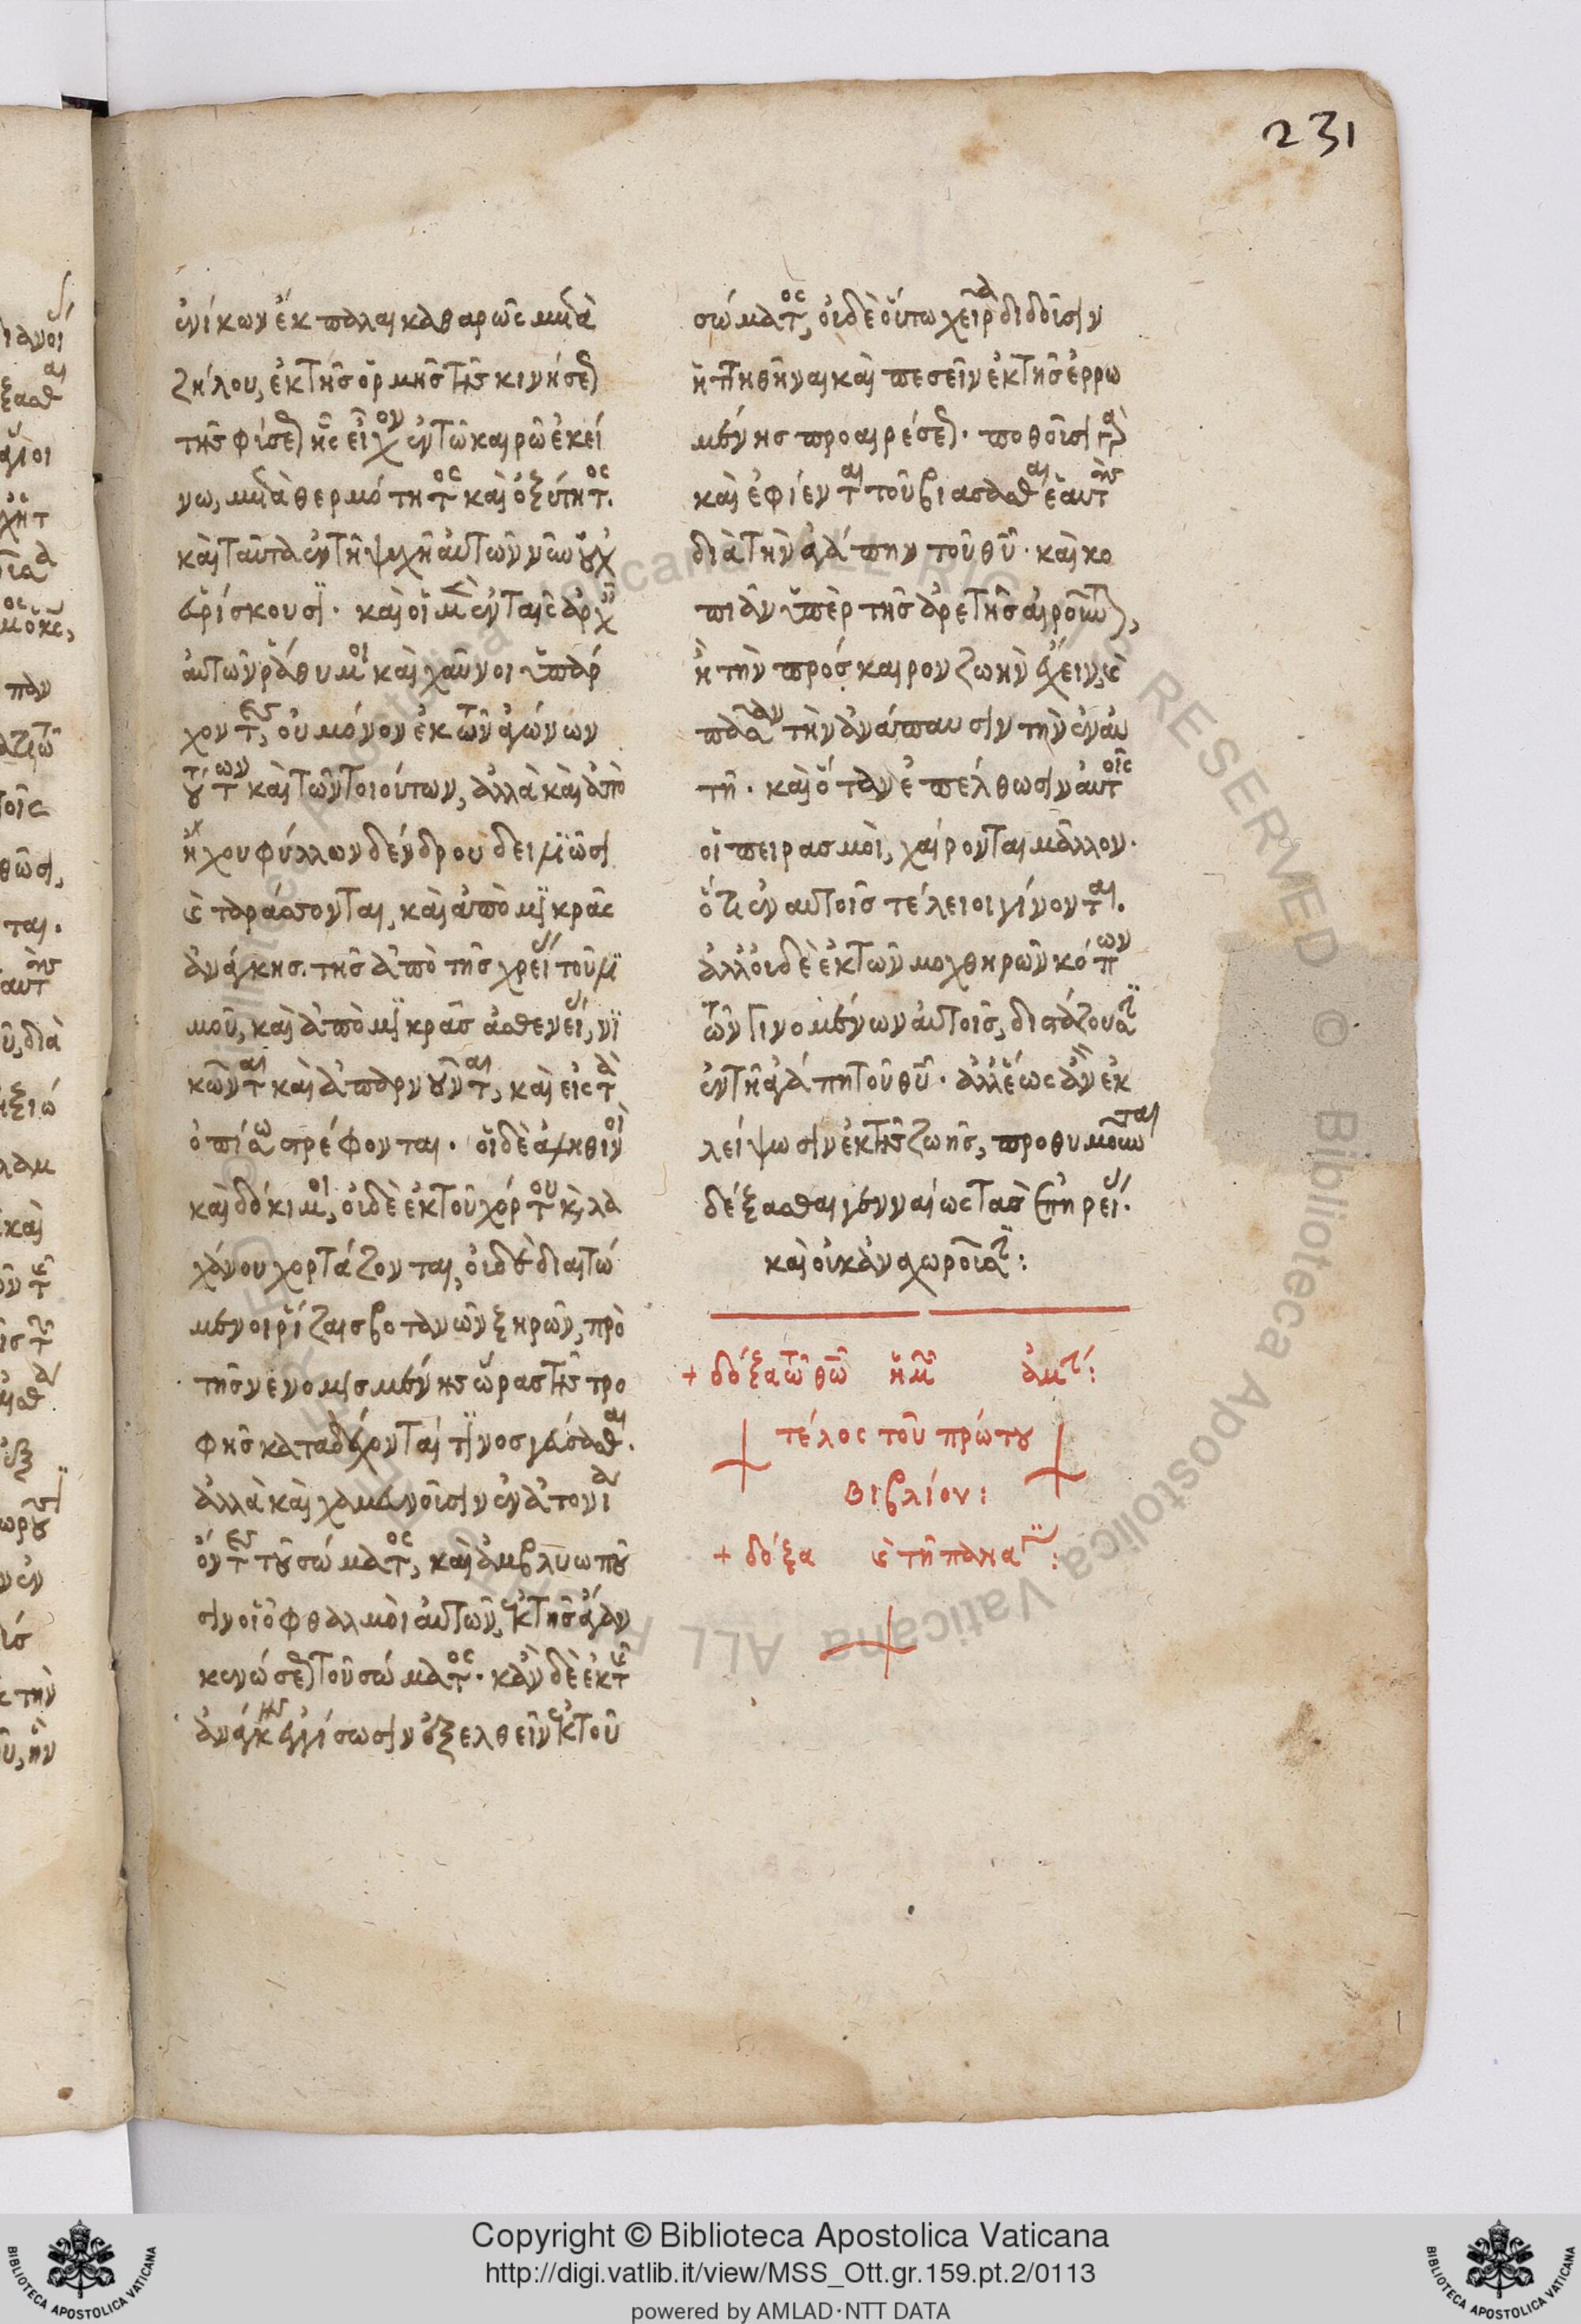 231
ἐνίκων ἐκ πάλαι καθαρῶς μετὰ
ζήλου, ἐκ τῆς ὁρμῆς τῆς κινήσεως
τῆς φύσεως ἧς εἶχον ἐν τῶ καιρῶ ἐκεί
νω, μετὰ θερμότητος καὶ ὀξύτητος.
καὶ ταῦτα ἐν τῆ ψυχῆ αὐτῶν νῦν οὐχ
εὑρίσκουσι. καὶ οἱ μὲν ἐν ταῖς ἀρχαῖς
αὐτῶν ῥάθυμοι καὶ χαῦνοι ὑπάρ
χοντες, οὐ μόνον ἐκ τῶν ἀγώνων
τούτων καὶ τῶν τοιούτων, ἀλλὰ καὶ ἀπὸ
ἤχου φύλλων δένδρου δειλιῶσι
καὶ ταράσσονται, καὶ ἀπὸ μικρᾶς
ἀνάγκης. τῆς ἀπὸ τῆς χρείας τοῦ λι
μοῦ, καὶ ἀπὸ μικρᾶς ἀσθενείας, νι
κῶνται καὶ ἀπαρνοῦνται, καὶ εἰς τὰ
ὀπίσω στρέφονται. οἱ δὲ ἀληθινοὶ
καὶ δόκιμοι, οὐδὲ ἐκ τοῦ χόρτου καὶ λα
χάνου χορτάζονται, οὐδὲ διαιτώ
μενοι ῥίζαις βοτανῶν ξηρῶν, πρὸ
τῆς νενομισμένης ὥρας τῆς τρο
φῆς καταδέχονταί τινος γεύσασθαι.
ἀλλὰ καὶ χαμευνοῦσιν ἐν ἀτονία
ὄντες τοῦ σώματος, καὶ ἀμβλυωποῦ
σιν οἱ ὀφθαλμοὶ αὐτῶν, ἐκ τῆς ἄγαν
κενώσεως τοῦ σώματος. κἂν δὲ ἐκ τῆς
ἀνάγκης ἐγγίσωσιν ἐξελθεῖν ἐκ τοῦ
σώματος, οὐδὲ οὕτω χεῖρα διδοῦσιν
ἡττηθῆναι καὶ πεσεῖν ἐκ τῆς ἐρρω
μένης προαιρέσεως. ποθοῦσι γὰρ
καὶ ἐφίενται τοῦ βιάσασθαι ἑαυτοὺς
διὰ τὴν ἀγάπην τοῦ θῦ. καὶ κο
πιᾶν ὑπὲρ τῆς ἀρετῆς αἱροῦνται,
ἢ τὴν πρόσκαιρον ζωὴν ἔχειν, καὶ
πᾶσαν τὴν ἀνάπαυσιν τὴν ἐν αὐ
τῆ. καὶ ὅταν ἐπέλθωσιν αὐτοῖς
οἱ πειρασμοὶ, χαίρονται μᾶλλον.
ὅτι ἐν αὐτοῖς τέλειοι γίνονται.
ἀλλ' οὐδὲ ἐκ τῶν μοχθηρῶν κόπων
τῶν γινομένων αὐτοῖς, διστάζουσιν
ἐν τῆ ἀγάπη τοῦ θῦ. ἀλλ' ἕως ἂν ἐκ
λείψωσιν ἐκ τῆς ζωῆς, προθυμοῦνται
δέξασθαι γενναίως τὰς ἐπηρείας.
καὶ οὐκ ἀναχωροῦσιν:
+ δόξα τῶ θῶ ἡμῶν ἀμήν:
τέλος τοῦ πρώτου
βιβλίον:
+ δόξα καὶ τῆ παναγία:
Copyright © Biblioteca Apostolica Vaticana
http://digi.vatlib.it/view/MSS_Ott.gr.159.pt.2/0113
powered by AMLAD·NTT DATA
BIBLIOTECA APOSTOLICA VATICANA
BIBLIOTECA APOSTOLICA VATICANA